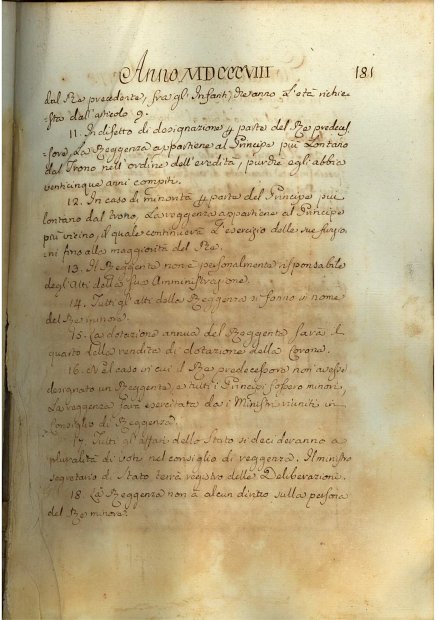 Anno MDCCCVIII 181
dal Re precedente, fra gl'Infanti, che anno l'età richie-
sta dall'articolo 9.
11. In difetto di designazione p parte del Re predeces-
sore, La Reggenza appartiene al Principe più Lontano
dal Trono nell'ordine dell'eredità, purche egli abbia
venticinque anni compiti.
12. In caso di minorità p parte del Principe più
lontano dal trono, La reggenza appartiene al Principe
più vicino, il quale continuerà l'esercizio delle sue funzio-
ni fino alla maggiorità del Re.
13. Il Reggente non è personalmente risponsabile
degli Atti della sua Amministrazione.
14. Tutti gli atti della Reggenza si fanno in nome
del Re minore.
15. La dotazione annua del Reggente sarà il
quarto della rendita di dotazione della Corona.
16. Nel caso in cui il Re predecessore non avesse
designato un Reggente, e tutti i Principi fossero minori,
La reggenza sarà esercitata dai Ministri riuniti in
Consiglio di Reggenza.
17. Tutti gli affari dello Stato si decideranno a
pluralità di voti nel consiglio di reggenza. Il ministro
segretario di Stato terrà registro delle Deliberazione.
18. La Reggenza non à alcun diritto sulla persona
del Re minore.